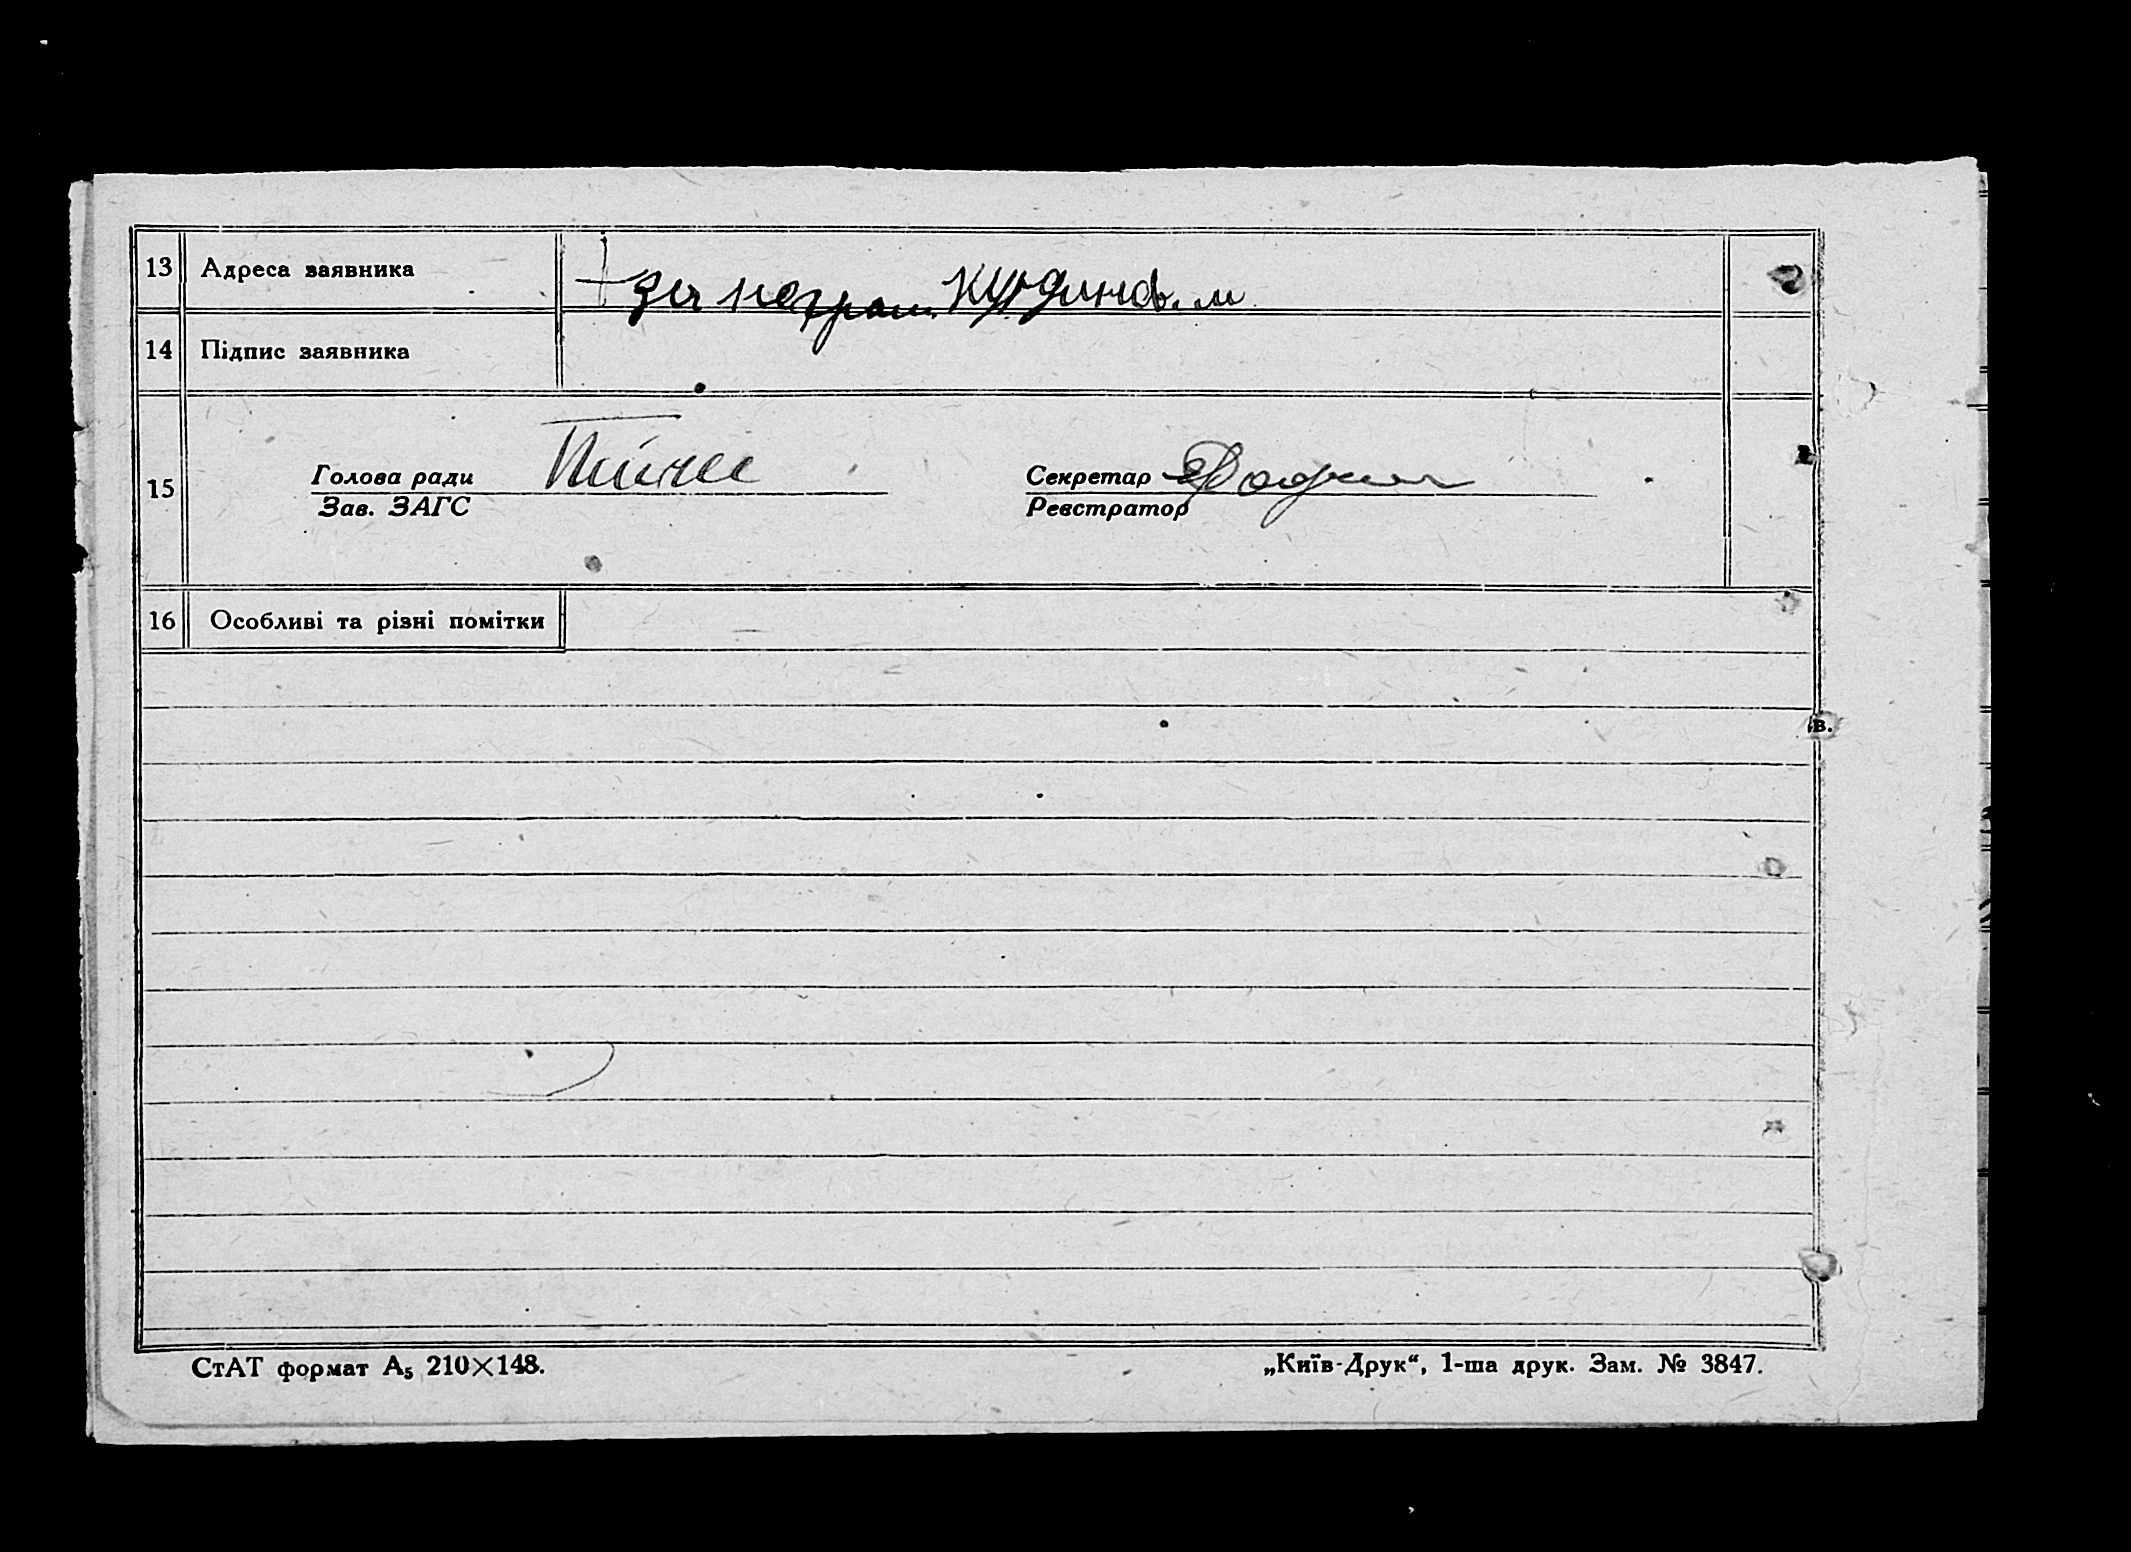 13 Адреса заявника
+ за неграм.
14 Підпис заявника
15 Голова ради
Зав. ЗАГС
Секретар
Реєстратор
16 Особливі та різні помітки
в.
СтАТ формат А5 210×148.
„Київ-Друк“, 1-ша друк. Зам. № 3847.